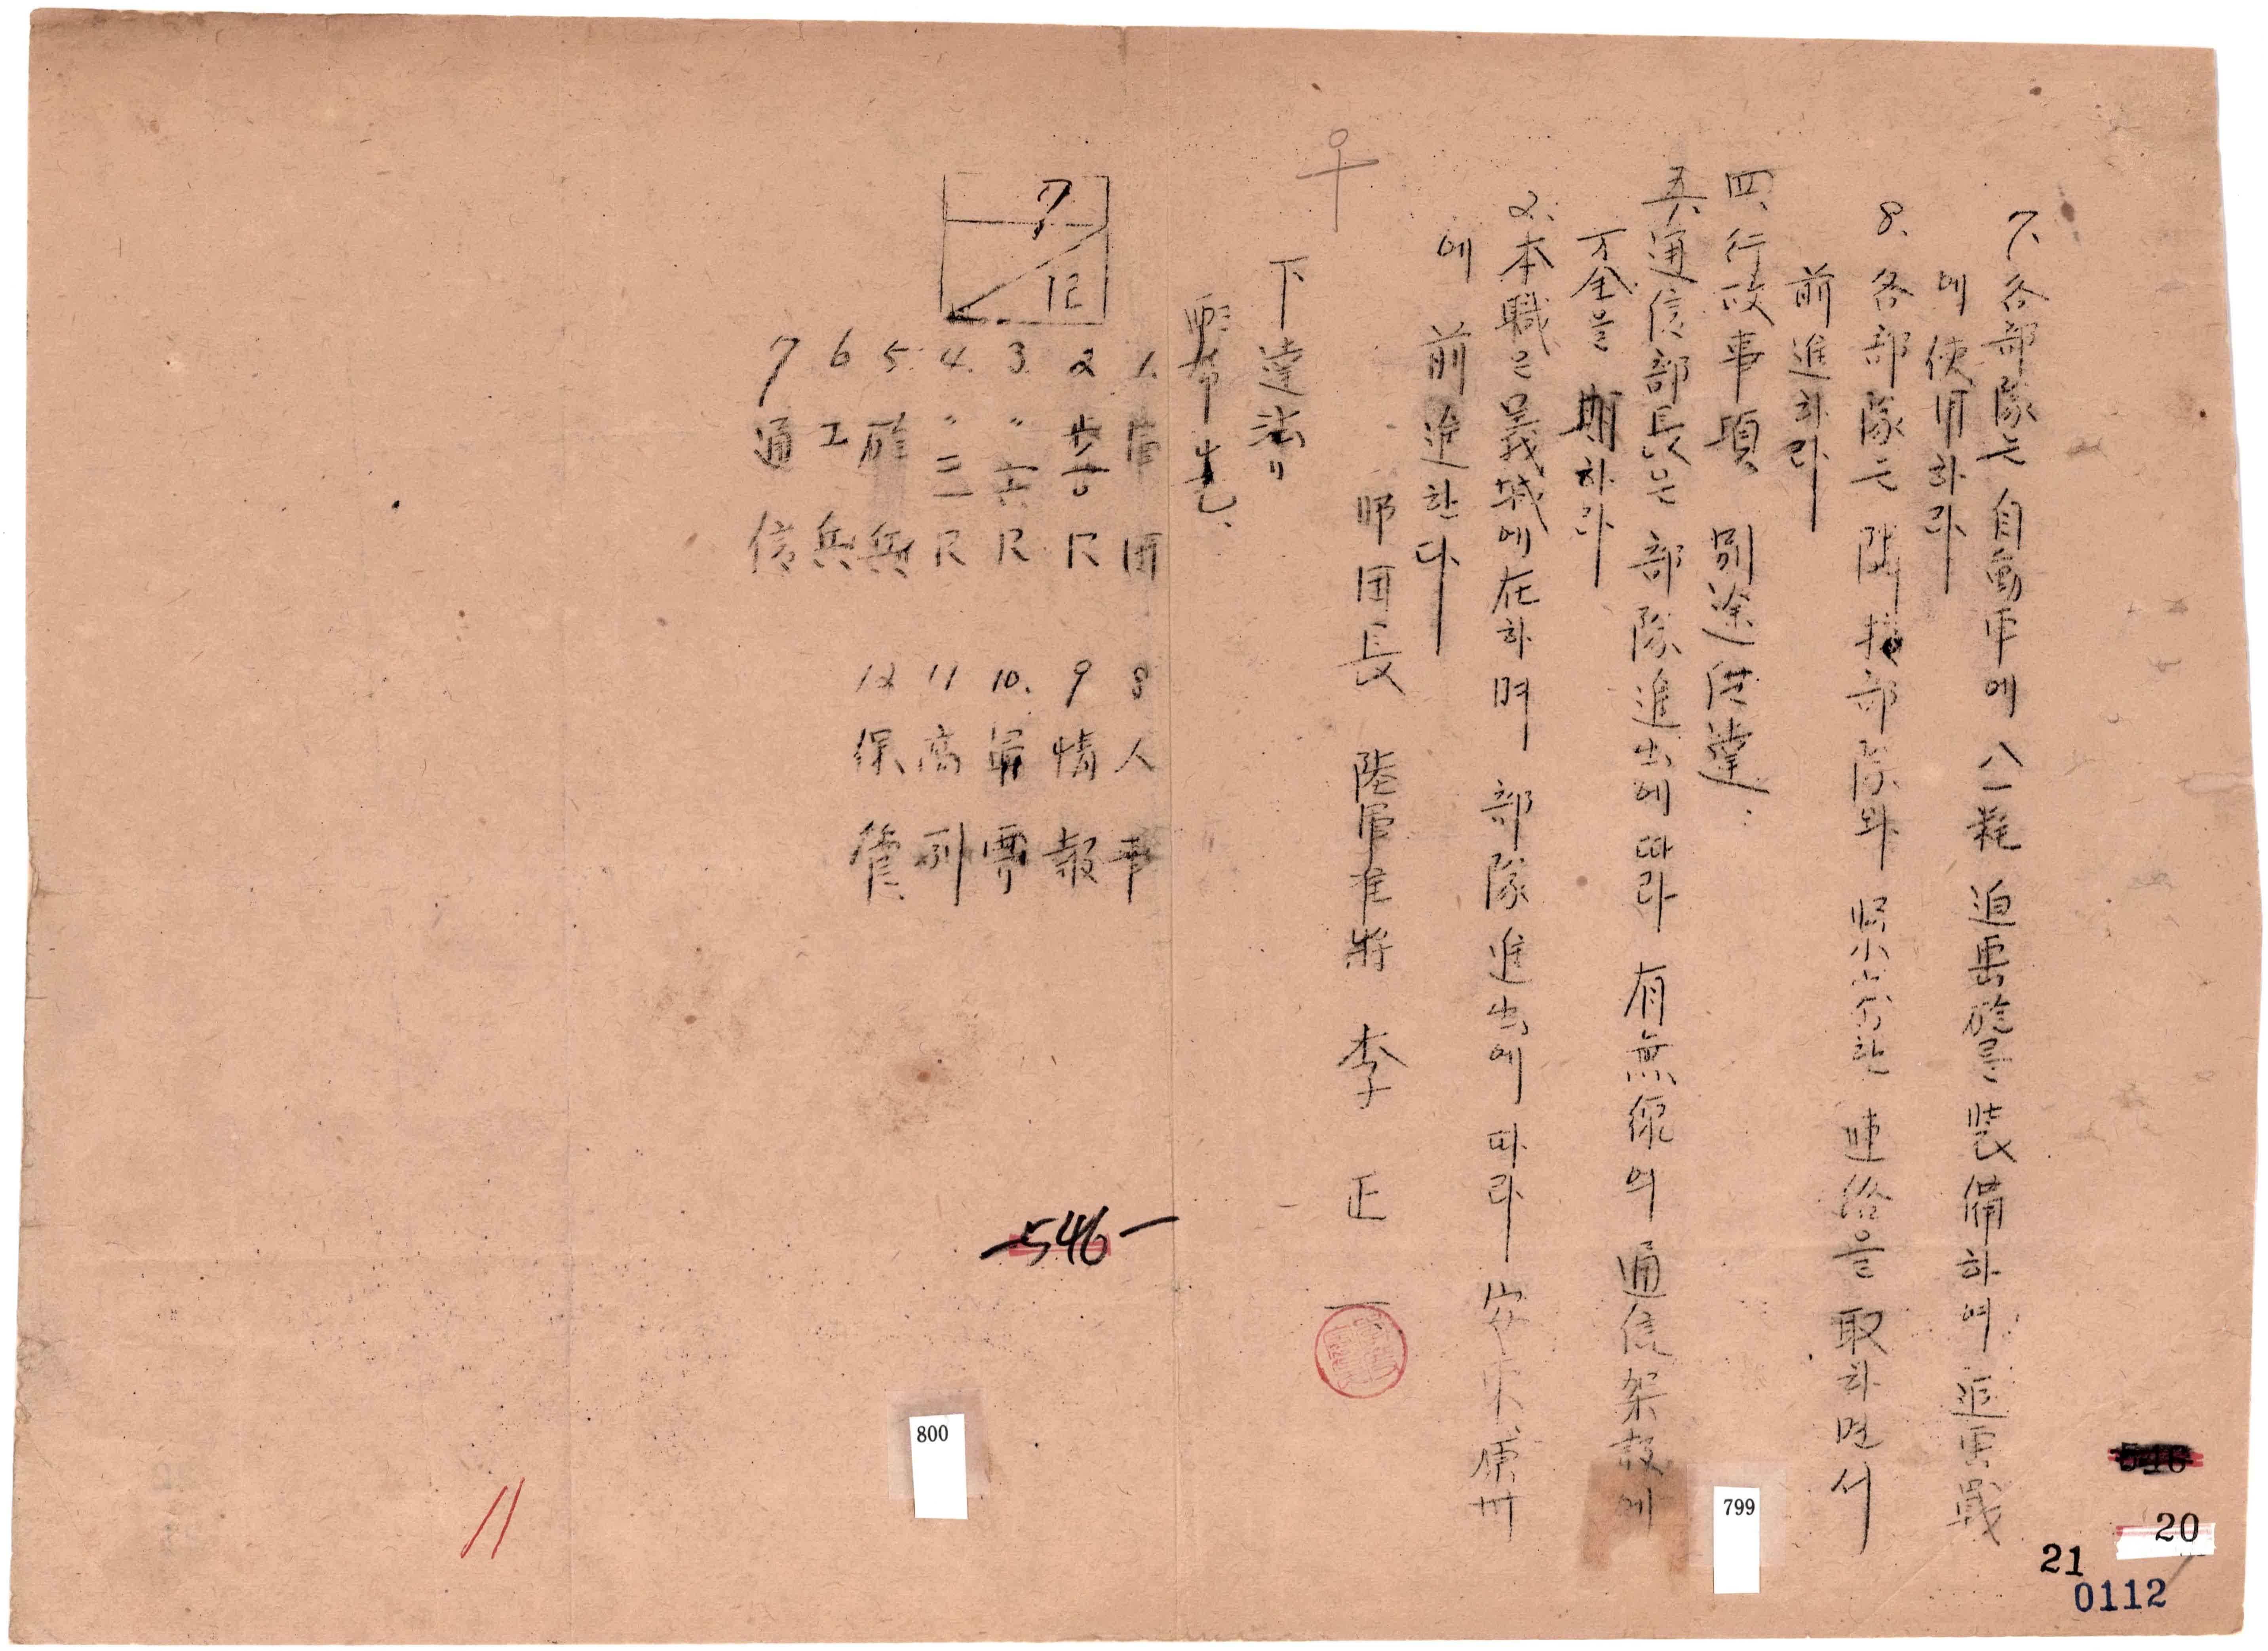 7. 各部隊는 自動車에 八一粍 迫擊砲를 裝備하여 追擊戰
에 使用하라
8. 各部隊는 隣接部隊와 緊密한 連絡을 取하면서
前進하라
四、行政事項 別途 浩達.
五、通信部長은 部隊進出에 따라 有無線의 通信架設에
万全을 期하라
2. 本職은 義城에 在하며 部隊進出에 따라 安東 原州
에 前進한다
師団長 陸軍准將 李正一
下達法
配布先
1. 軍団
2 步吉R
3. 〃 六R
4. 〃 三R
5. 砲兵
6 工兵
7 通信
8 人事
9 情報
10. 軍需
11 高列
12 保管
7
12
546
800
799
11
20
21
0112